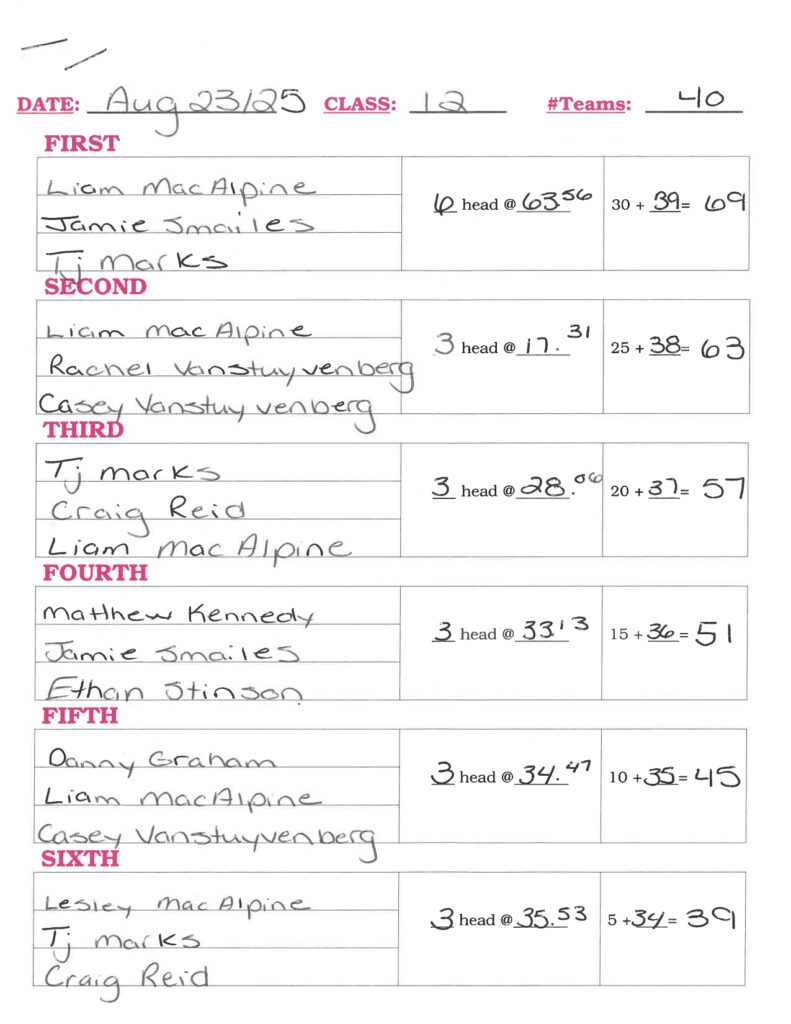 DATE: Aug 23/25 CLASS: 12 #Teams: 40
FIRST
Liam MacAlpine
6 head @ 63.56 30 + 39= 69
Jamie Smailes
Tj Marks
SECOND
Liam MacAlpine
3 head @ 17.31 25 + 38= 63
Rachel Vanstuyvenberg
Casey Vanstuyvenberg
THIRD
Tj Marks
3 head @ 28.06 20 + 37= 57
Craig Reid
Liam MacAlpine
FOURTH
Matthew Kennedy
3 head @ 33.13 15 + 36= 51
Jamie Smailes
Ethan Stinson
FIFTH
Danny Graham
3 head @ 34.47 10 + 35= 45
Liam MacAlpine
Casey Vanstuyvenberg
SIXTH
Lesley MacAlpine
3 head @ 35.53 5 + 34= 39
Tj Marks
Craig Reid